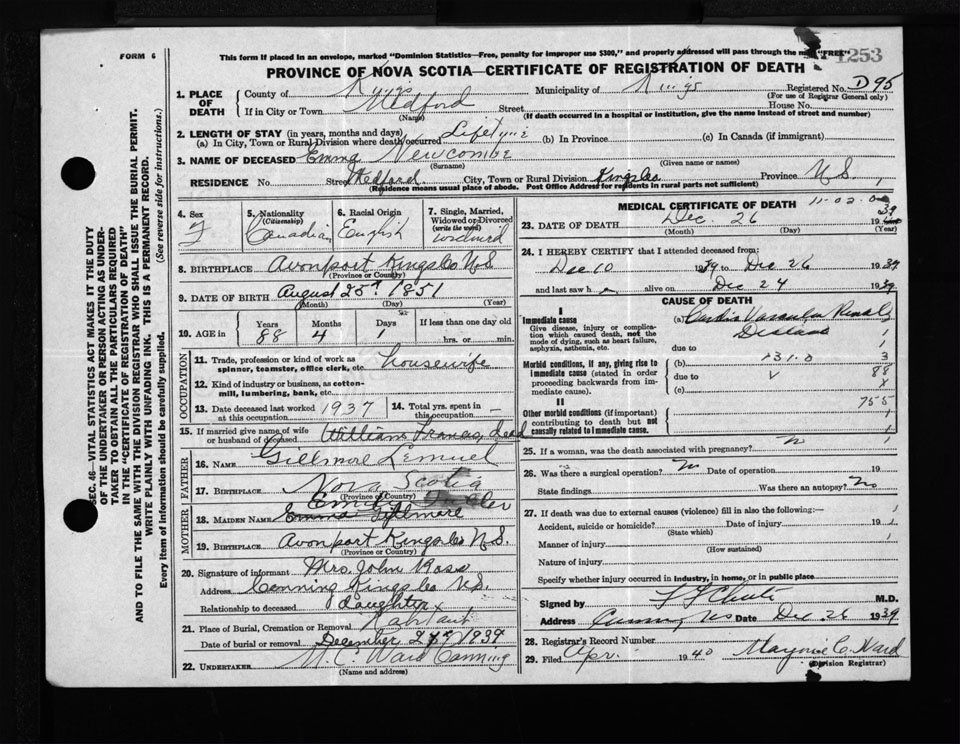 FORM 6
This form if placed in an envelope, marked "Dominion Statistics—Free, penalty for improper use $300," and properly addressed will pass through the "FREE"
1253
PROVINCE OF NOVA SCOTIA—CERTIFICATE OF REGISTRATION OF DEATH
1. PLACE OF DEATH
County of Kings Municipality of Kings Registered No. D95
(For use of Registrar General only)
If in City or Town Medford Street House No.
(Name) (If death occurred in a hospital or institution, give the name instead of street and number)
2. LENGTH OF STAY (in years, months and days)
(a) In City, Town or Rural Division where death occurred Lifetime (b) In Province (c) In Canada (if immigrant)
3. NAME OF DECEASED Emma Newcombe
(Surname) (Given name or names)
RESIDENCE No. Street Medford City, Town or Rural Division Kings Co Province N.S.
(Residence means usual place of abode. Post Office Address for residents in rural parts not sufficient)
4. Sex F
5. Nationality (Citizenship) Canadian
6. Racial Origin English
7. Single, Married, Widowed or Divorced (write the word) Widowed
8. BIRTHPLACE Avonport Kings Co N.S
(Province or Country)
9. DATE OF BIRTH August 25th 1851
(Month) (Day) (Year)
10. AGE in Years Months Days If less than one day old
88 4 hrs. or min.
OCCUPATION
11. Trade, profession or kind of work as spinner, teamster, office clerk, etc. housewife
12. Kind of industry or business, as cotton-mill, lumbering, bank, etc.
13. Date deceased last worked at this occupation 1937
14. Total yrs. spent in this occupation —
15. If married give name of wife or husband of deceased William Francis, dead
FATHER
16. NAME Gillmore Lemuel
17. BIRTHPLACE Nova Scotia
(Province or Country)
MOTHER
18. MAIDEN NAME Emma Gillmore
19. BIRTHPLACE Avonport Kings Co N.S.
(Province or Country)
20. Signature of informant Mrs. John Ross
Address Canning Kings Co N.S.
Relationship to deceased daughter
21. Place of Burial, Cremation or Removal
Date of burial or removal December 27th 1939
22. UNDERTAKER W. C. Ward Canning
(Name and address)
MEDICAL CERTIFICATE OF DEATH
23. DATE OF DEATH Dec 26 1939
(Month) (Day) (Year)
24. I HEREBY CERTIFY that I attended deceased from:
Dec 10 1939 to Dec 26 1939
and last saw h alive on Dec 24 1939
CAUSE OF DEATH
I
Immediate cause (a) Cardio Vascular Renal Disease
Give disease, injury or complication which caused death, not the mode of dying, such as heart failure, asphyxia, asthenia, etc.
due to
Morbid conditions, if any, giving rise to immediate cause (stated in order proceeding backwards from immediate cause).
(b)
due to
(c)
II
Other morbid conditions (if important) contributing to death but not causally related to immediate cause.
25. If a woman, was the death associated with pregnancy? No
26. Was there a surgical operation? No Date of operation 19
State findings Was there an autopsy? No
27. If death was due to external causes (violence) fill in also the following:—
Accident, suicide or homicide? Date of injury 19
(State which)
Manner of injury
(How sustained)
Nature of injury
Specify whether injury occurred in industry, in home, or in public place
Signed by M.D.
Address Canning NS Date Dec 26 1939
28. Registrar's Record Number
29. Filed Apr. 1940 Marjorie C. Ward
(Division Registrar)
SEC. 46—VITAL STATISTICS ACT MAKES IT THE DUTY
OF THE UNDERTAKER OR PERSON ACTING AS UNDER-
TAKER TO OBTAIN ALL THE PARTICULARS REQUIRED
IN THE "CERTIFICATE OF REGISTRATION OF DEATH"
AND TO FILE THE SAME WITH THE DIVISION REGISTRAR WHO SHALL ISSUE THE BURIAL PERMIT.
WRITE PLAINLY WITH UNFADING INK. THIS IS A PERMANENT RECORD.
Every item of information should be carefully supplied. (See reverse side for instructions.)